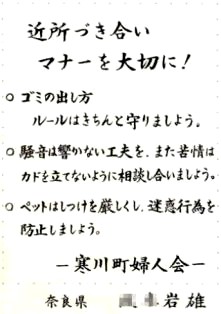 近所づき合い
マナーを大切に!
○ ゴミの出し方
ルールはきちんと守りましょう。
○ 騒音は響かない工夫を、また苦情は
カドを立てないように相談し合いましょう。
○ ペットはしつけを厳しくし、迷惑行為を
防止しましょう。
—寒川町婦人会—
奈良県 岩雄